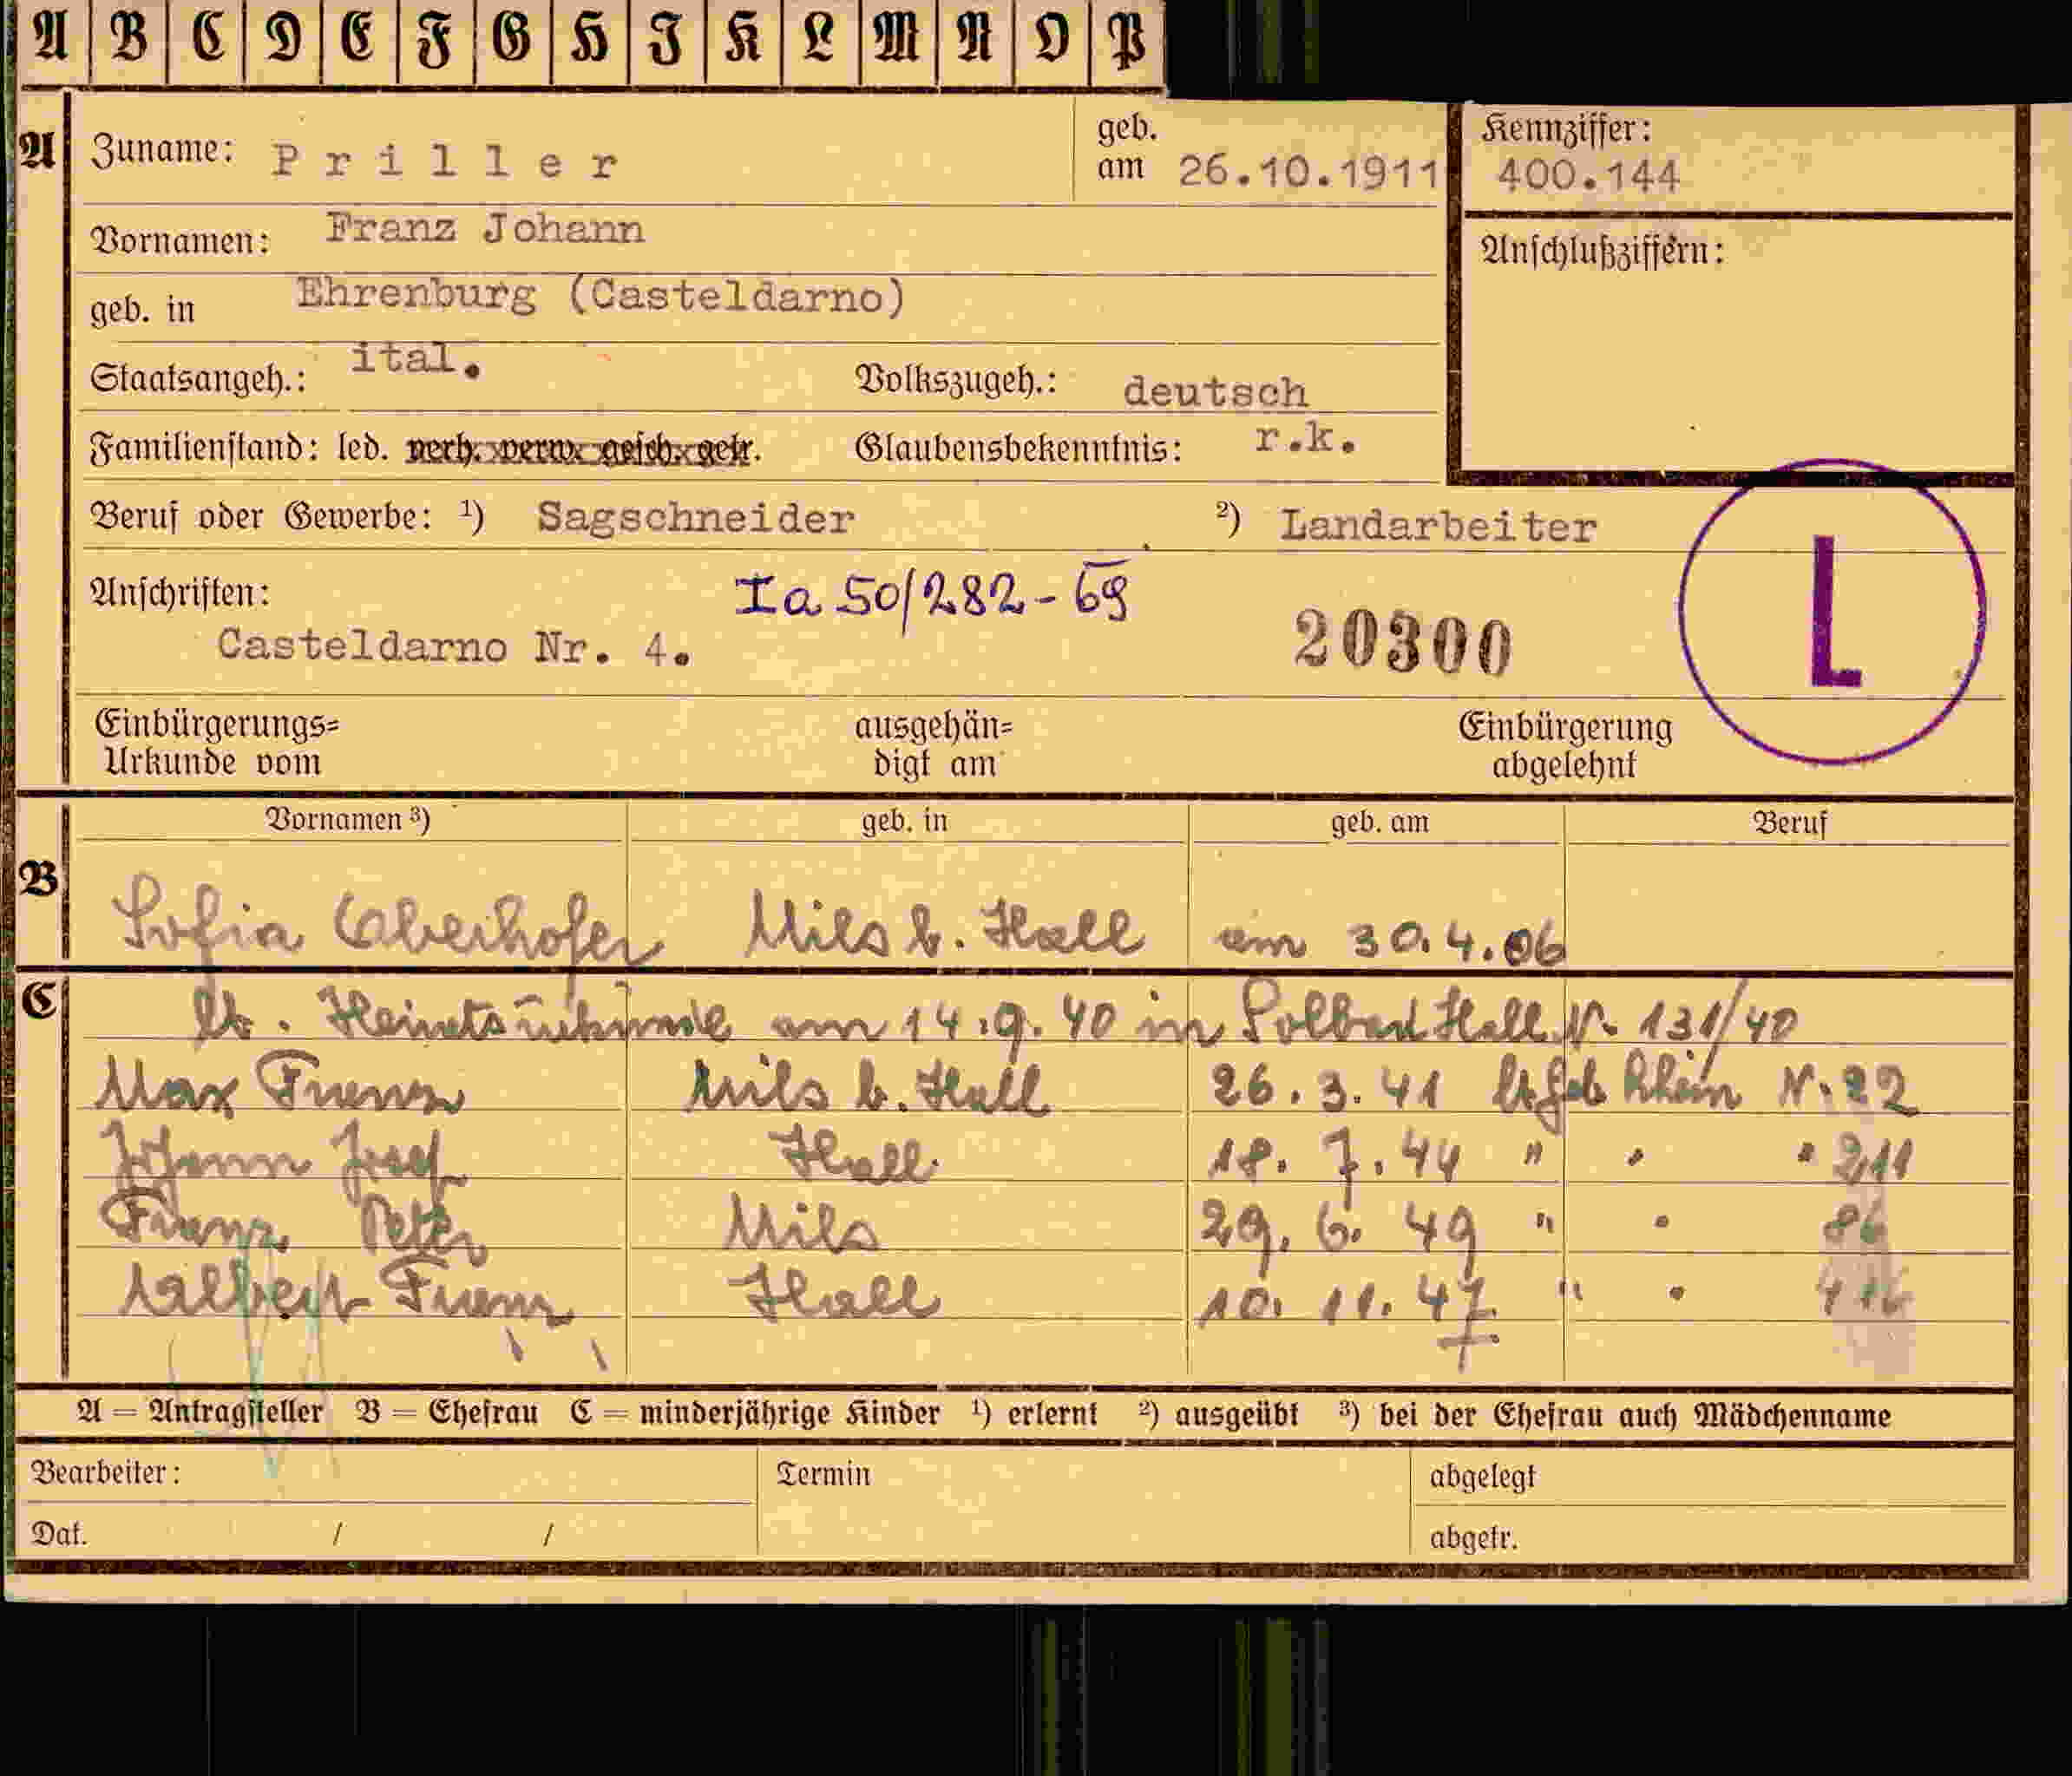 A B C D E F G H I K L M N O P
A Zuname: Priller geb. am 26.10.1911 Kennziffer: 400.144
Vornamen: Franz Johann Anschlußziffern:
geb. in Ehrenburg (Casteldarno)
Staatsangeh.: ital. Volkszugeh.: deutsch
Familienstand: led. verh. verw. gesch. getr. Glaubensbekenntnis: r.k.
Beruf oder Gewerbe: ¹) Sagschneider ²) Landarbeiter
Anschriften: Ia 50/282-69
Casteldarno Nr. 4. 20300 L
Einbürgerungs= ausgehän= Einbürgerung
Urkunde vom digt am abgelehnt
Vornamen ³) geb. in geb. am Beruf
B Sofia Oberhofer Mils b. Hall am 30.4.06
C lt. Heiratsurkunde am 14.9.40 in Solbad Hall N. 131/40
Max Franz Mils b. Hall 26.3.41 lt. N. 22
Johann Josef Hall 18.7.44 " " " 211
Franz Peter Mils 29.6.49 " " 86
Albert Franz Hall 10.11.47 " "
A = Antragsteller B = Ehefrau C = minderjährige Kinder ¹) erlernt ²) ausgeübt ³) bei der Ehefrau auch Mädchenname
Bearbeiter: Termin abgelegt
Dat. / / abgetr.